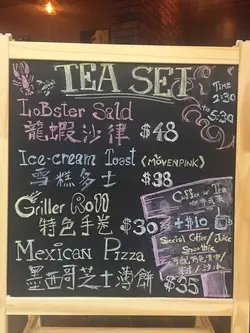 TEA SET
Time
2:30
to
5:30
LoBster Sald
龍蝦沙律 $48
Ice-cream Toast (MÖVENPICK)
雪糕多士 $38
Griller Roll
特色手卷 $30
Mexican Pizza
墨西哥芝士薄餅 $35
Coffee or Tea
咖啡或茶
+$10
Special Coffee / Juice
Smoothie